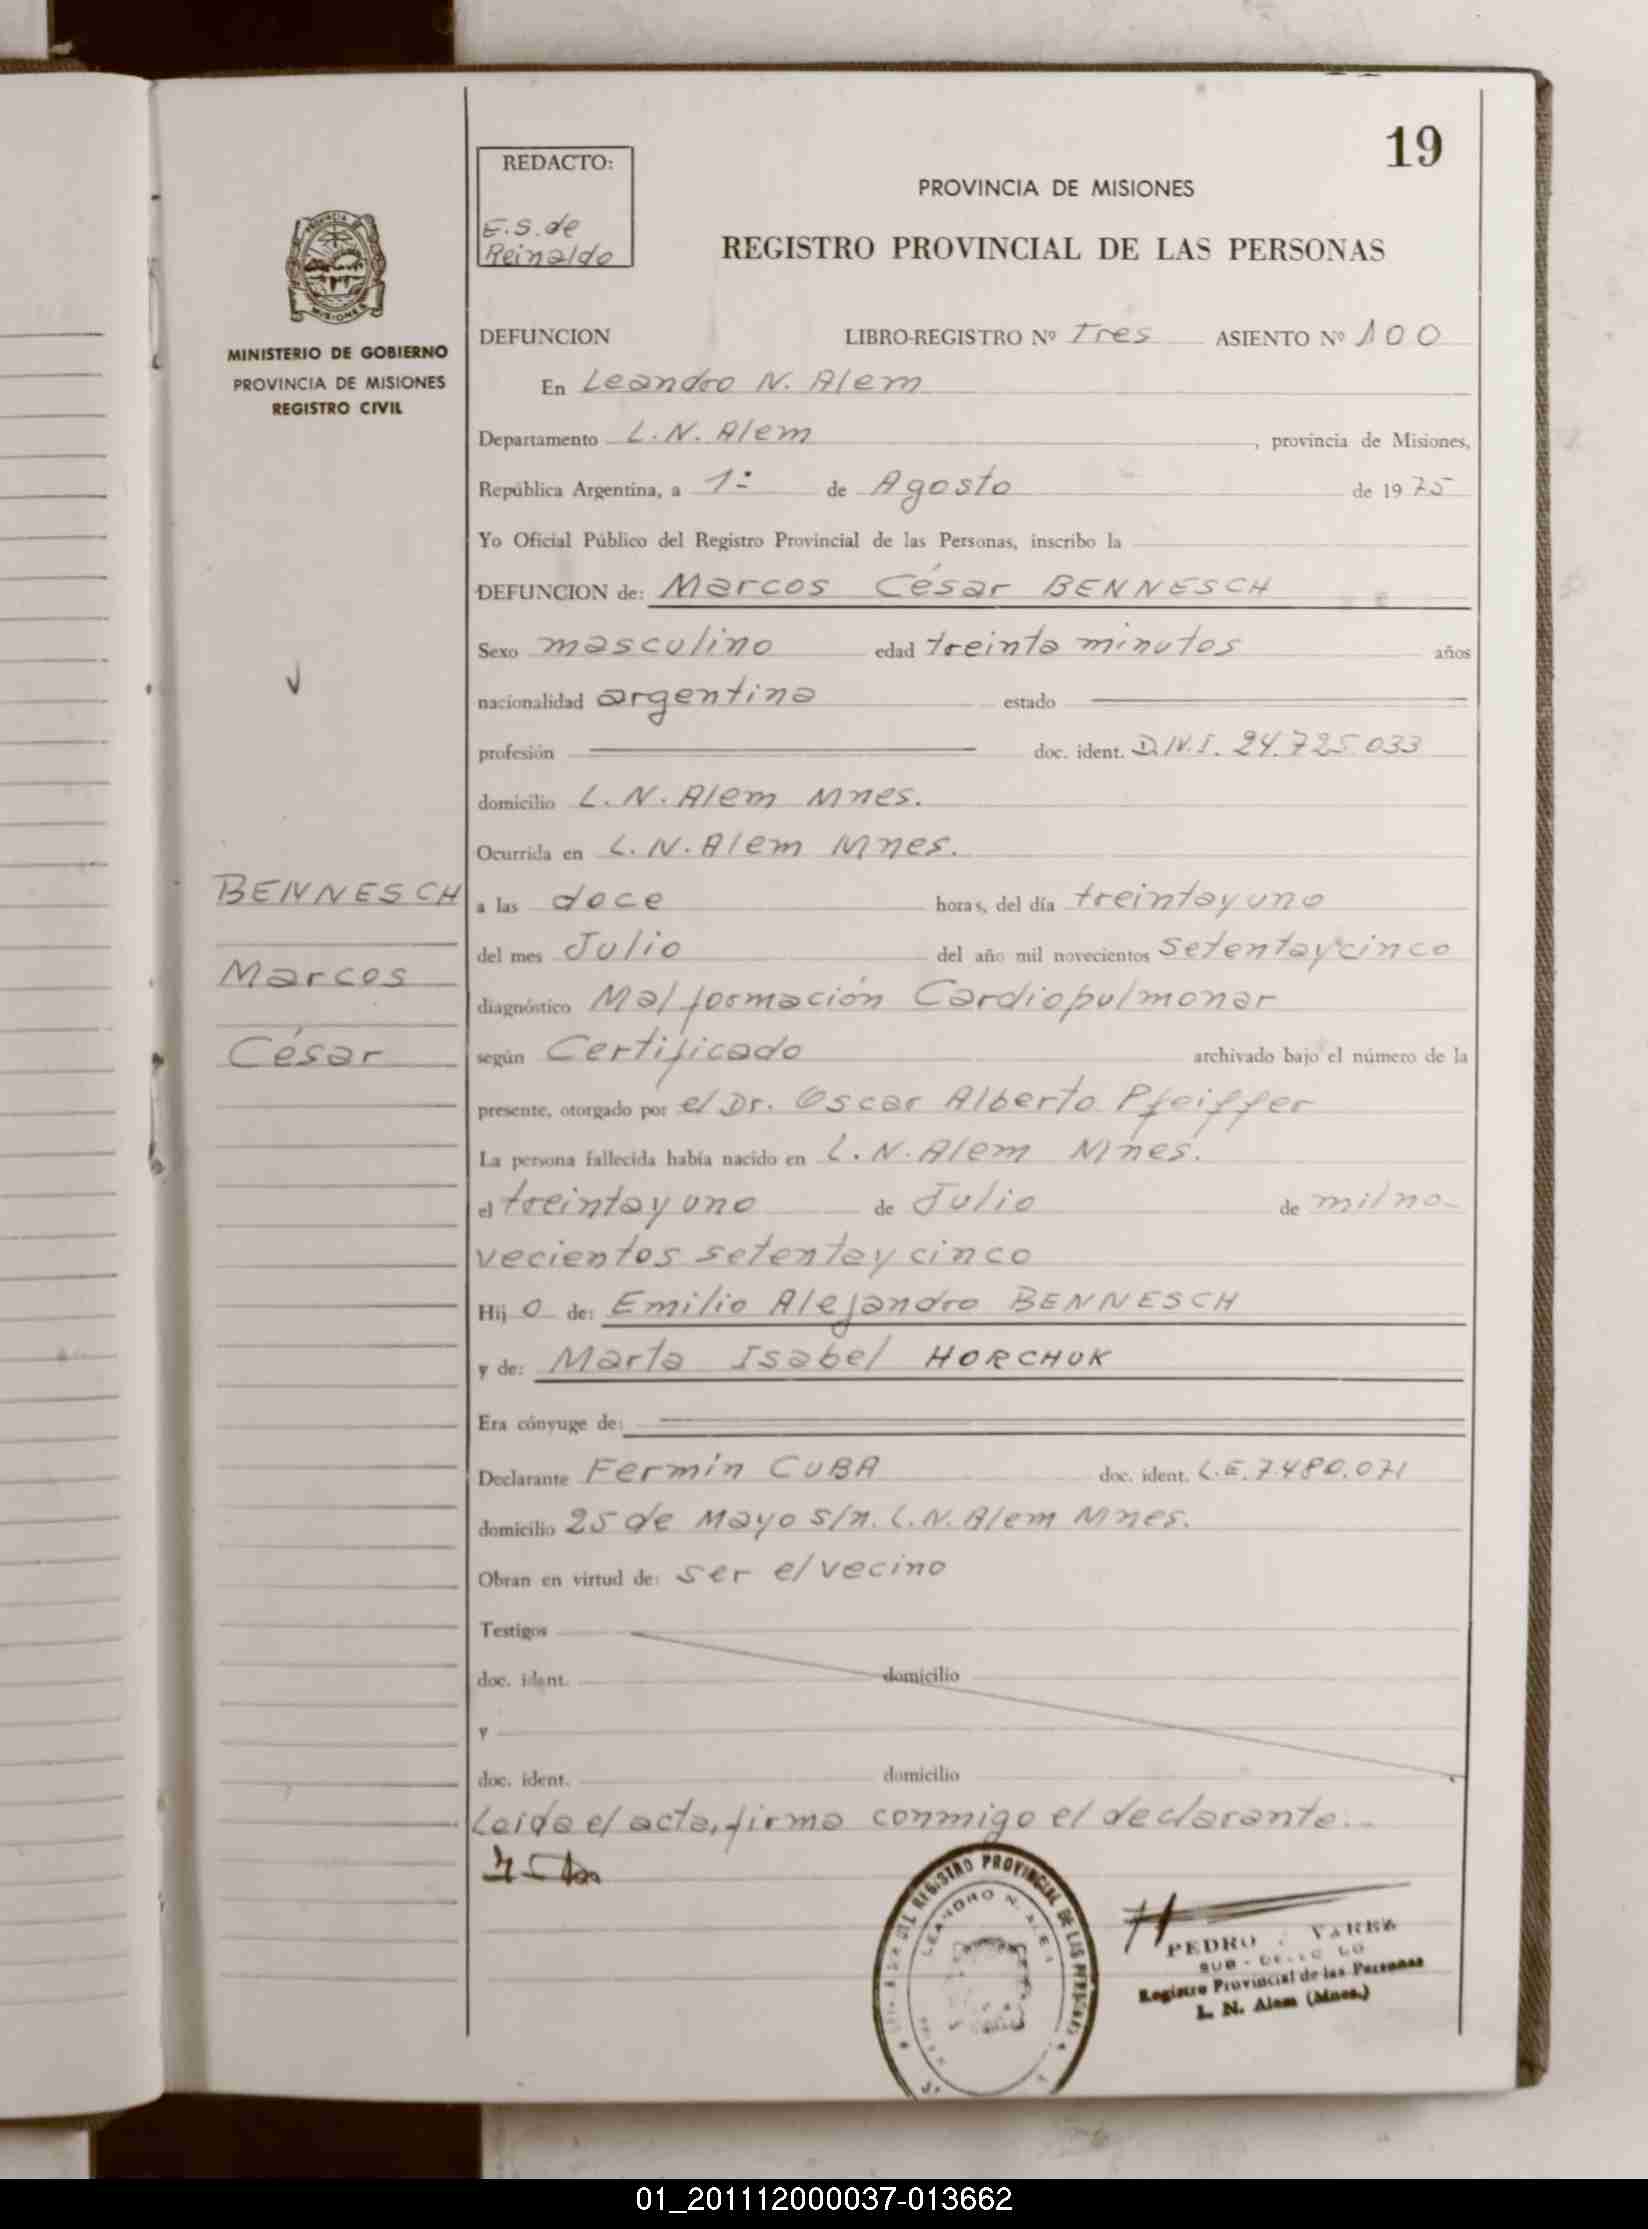 19
REDACTO:
E.S. de
Reinaldo
PROVINCIA DE MISIONES
REGISTRO PROVINCIAL DE LAS PERSONAS
MINISTERIO DE GOBIERNO
PROVINCIA DE MISIONES
REGISTRO CIVIL
DEFUNCION LIBRO-REGISTRO Nº Tres ASIENTO Nº 100
En Leandro N. Alem
Departamento L.N. Alem, provincia de Misiones,
República Argentina, a 1º de Agosto de 1975
Yo Oficial Público del Registro Provincial de las Personas, inscribo la
DEFUNCION de: Marcos César BENNESCH
Sexo masculino edad treinta minutos años
nacionalidad argentina estado
profesión doc. ident. D.N.I. 24.725.033
domicilio L.N. Alem Mnes.
Ocurrida en L.N. Alem Mnes.
BENNESCH
Marcos
César
a las doce horas, del día treinta y uno
del mes Julio del año mil novecientos setenta y cinco
diagnóstico Malformación Cardiopulmonar
según Certificado archivado bajo el número de la
presente, otorgado por el Dr. Oscar Alberto Pfeiffer
La persona fallecida había nacido en L.N. Alem Mnes.
el treinta y uno de Julio de mil no-
vecientos setenta y cinco
Hijo de: Emilio Alejandro BENNESCH
y de: Marta Isabel HORCHUK
Era cónyuge de:
Declarante Fermín CUBA doc. ident. L.E. 7.480.071
domicilio 25 de Mayo s/n. L.N. Alem Mnes.
Obran en virtud de: ser el vecino
Testigos
doc. ident. domicilio
y
doc. ident. domicilio
Leída el acta, firma conmigo el declarante.-
REGISTRO PROVINCIAL DE LAS PERSONAS
LEANDRO N. ALEM
PEDRO
SUB-
Registro Provincial de las Personas
L. N. Alem (Mnes.)
01_201112000037-013662